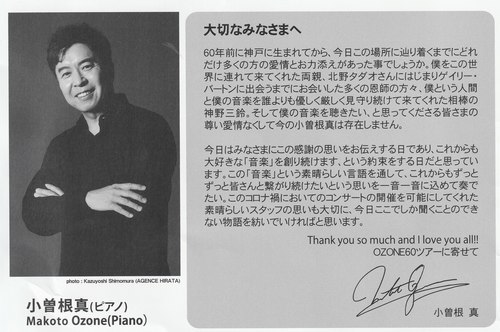 大切なみなさまへ
60年前に神戸に生まれてから、今日この場所に辿り着くまでにどれ
だけ多くの方の愛情とお力添えがあった事でしょうか。僕をこの世
界に連れて来てくれた両親、北野タダオさんにはじまりゲイリー・
バートンに出会うまでにお会いした多くの恩師の方々、僕という人間
と僕の音楽を誰よりも優しく厳しく見守り続けて来てくれた相棒の
神野三鈴。そして僕の音楽を聴きたい、と思ってくださる皆さまの
尊い愛情なくして今の小曽根真は存在しません。
今日はみなさまにこの感謝の思いをお伝えする日であり、これからも
大好きな「音楽」を創り続けます、という約束をする日だと思ってい
ます。この「音楽」という素晴らしい言語を通して、これからもずっと
ずっと皆さんと繋がり続けたいという思いを一音一音に込めて奏で
たい。このコロナ禍においてのコンサートの開催を可能にしてくれた
素晴らしいスタッフの思いも大切に、今日ここでしか聞くことのでき
ない物語を紡いでいければと思います。
Thank you so much and I love you all!!
OZONE60ツアーに寄せて
小曽根 真
photo : Kazuyoshi Shimomura (AGENCE HIRATA)
小曽根真(ピアノ)
Makoto Ozone(Piano)